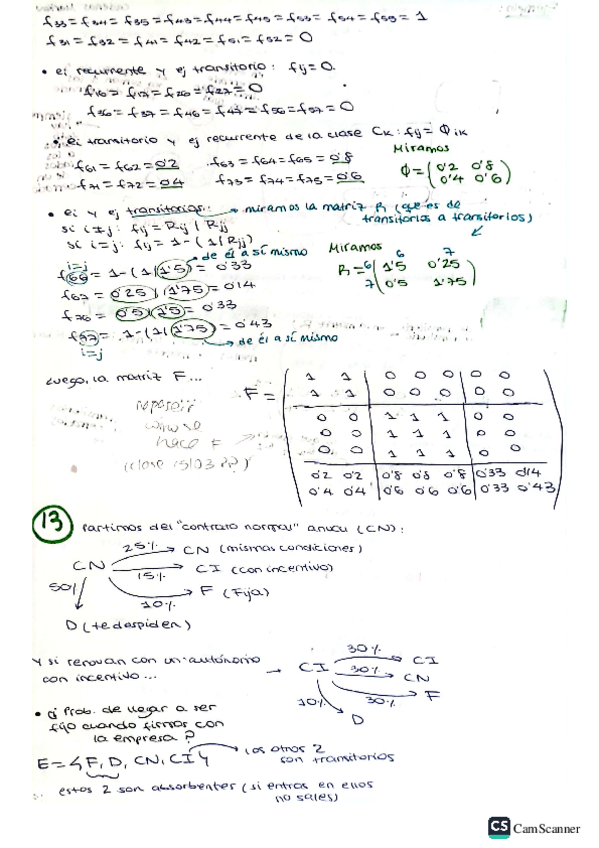 f33 = f34 = f35 = f43 = f44 = f45 = f53 = f54 = f55 = 1
f31 = f32 = f41 = f42 = f51 = f52 = 0
• ei recurrente y ej transitorio: fij = 0.
f16 = f17 = f26 = f27 = 0
f36 = f37 = f46 = f47 = f56 = f57 = 0
• ei transitorio y ej recurrente de la clase CK: fij = ΦiK
Miramos
f61 = f62 = 0'2 f63 = f64 = f65 = 0'8
f71 = f72 = 0'4 f73 = f74 = f75 = 0'6
Φ = (0'2 0'8
0'4 0'6)
• ei y ej transitorios: → miramos la matriz R (que es de
transitorios a transitorios)
si i≠j: fij = Rij / Rjj
si i=j: fij = 1 - (1/Rjj)
de él a sí mismo
Miramos
i=j
f66 = 1 - (1/1'5) = 0'33
6 7
R = 6 (1'5 0'25
7 0'5 1'75)
f67 = 0'25 / 1'75 = 0'14
f76 = 0'5 / 1'5 = 0'33
f77 = 1 - (1/1'75) = 0'43
i=j
de él a sí mismo
Luego, la matriz F...
F =
1 1 0 0 0 0 0
1 1 0 0 0 0 0
0 0 1 1 1 0 0
0 0 1 1 1 0 0
0 0 1 1 1 0 0
0'2 0'2 0'8 0'8 0'8 0'33 0'14
0'4 0'4 0'6 0'6 0'6 0'33 0'43
hace F
(clase 15/03??)
13 Partimos del "contrato normal" anual (CN):
25% → CN (mismas condiciones)
CN
15% → CI (con incentivo)
50%
10% → F (Fija)
D (te despiden)
Y si renovan con un
con incentivo...
→ CI
30% → CI
30% → CN
30% → F
10% → D
• a) Prob. de llegar a ser
fijo cuando firmas con
la empresa?
E = {F, D, CN, CI}
Los otros 2
son transitorios
estos 2 son absorbentes (si entras en ellos
no sales)
CS CamScanner